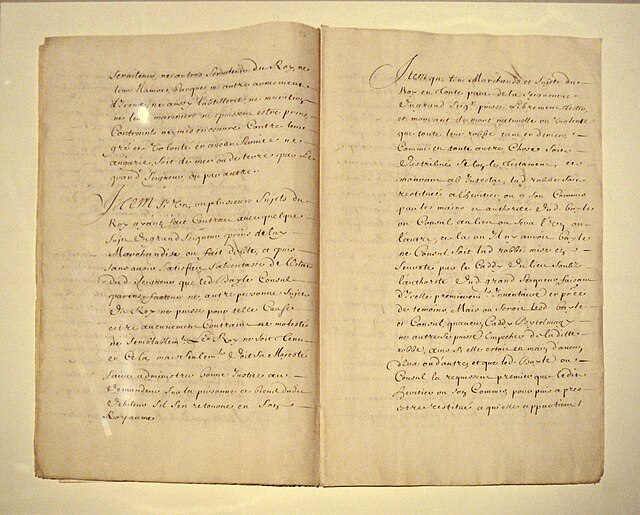 Serviteurs, ne autres Serviteurs du Roy, ne
leurs Navires, barques, ne autre armement
d'iceux, ne aussy l'artillerie, ne munition
ne les mariniers ne puissent estre prins,
Contraints ne mis en œuvre Contre leur
gré et Volonté en aucun Service ne
angarie, soit de mer ou de terre par le
grand Seigneur, ou par autre.
Item Si Un, ou plusieurs Sujets du
Roy ayans fait Contract avec quelque
Sujet du grand Seigneur, prins de luy
Marchandise, ou fait dette, et puis
sans avoir Satisfait S'absentasse de l'Estat
dud. Seigneur que led. Bayle Consul
parens, facteur ne autre personne Sujete
du Roy ne puisse pour telle Cause
estre aucunement Contraint ne molesté
ne Semblablemt. Le Roy ne soit tenu
en Cela, mais Seulemt. doit Sa Majesté
faire administrer bonne Justice au
Demandeur Sur la personne et biens dud.
debiteur S'il s'en retourne en Son
Royaume.
Item que tous Marchands et Sujets du
Roy en toute part de la Seigneurie
du grand Seigr. puisse Librement tester,
et mourant de mort naturelle ou Violente
que toute leur robbe tant en deniers,
Comme en toute autre Chose Soit
distribué Selon le testament, et
mourant ab Intestat, lad. robbe Soit
restituée a l'héritier ou a Son Commis
par les mains et authorité dud. bayle
ou Consul au lieu ou Sera l'Un ou
l'autre, et la ou il n'y auroit bayle
ne Consul Soit lad. robbe mise en
Seureté par le Caddy du lieu Soubz
l'authorité dud. grand Seigneur faisant
d'icelle premieremt. Inventaire en présence
de témoins, Mais ou Seroit led. bayle
et Consul, qu'aucun Caddy
ne autre Se puisse Empescher de ladite
robbe, ains Si elle estoit en main d'aucun
d'eux ou d'autres, et que led. Bayle ou
Consul la requissent premier que ledit
Heritier ou Son Commis,
estre restituée a qui elle appartient